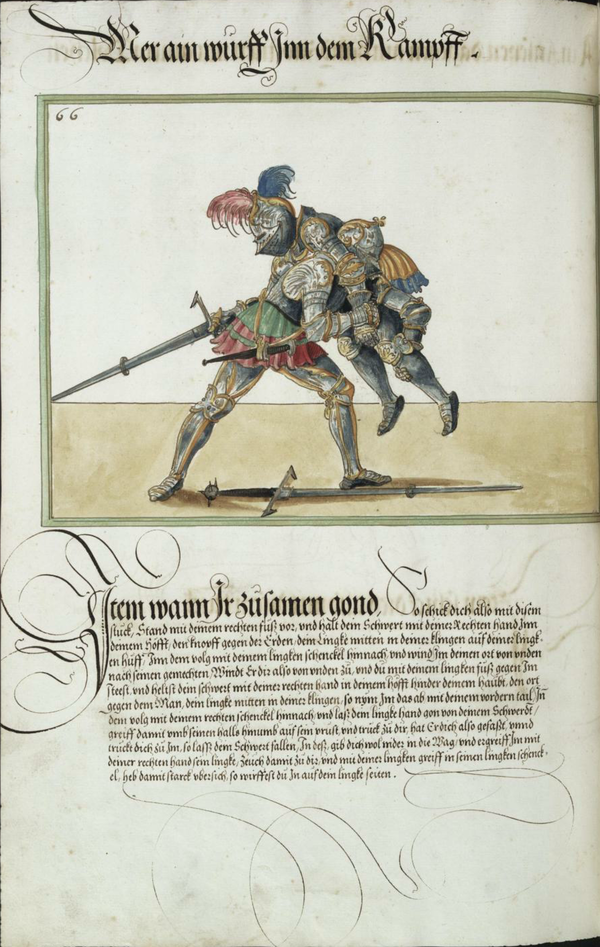 Mer ain wurff Inn dem Kampff.
66
Item wann Ir zusamen gond, So schick dich also mit disem
stuck, Stand mit deinem rechten fuß vor, vnd halt dein Schwert mit deiner Rechten hand Inn
deinem Höfft, den knopff gegen der Erden, dein Lingke mitten in deiner klingen auf deiner lingk-
en huff, Inn dem volg mit deinem lingken schenckel hinnach, vnd wind Im deinen ort von vnden
nach seinen gemechten, Windt Er dir also von vnden zu, vnd du mit deinem lingken fuß gegen Im
steest, vnd heltst dein schwert mit deiner rechten hand in deinem höfft hinder deinem haubt, den ort
gegen dem Man, dein lingke mitten in deiner klingen, so nym Im das ab mit deinem vordern tail, In
dem volg mit deinem rechten schenckel hinnach, vnd laß dein lingke hand gon von deinem Schwerdt,
greiff damit vmb seinen halls hinumb auf sein prust, vnd truck zu dir, hat Er dich also gefaßt, vnnd
truckt dich zu Im, so lasß dein Schwert fallen, In deß, gib dich wol nider in die Wag, vnd ergreiff Im mit
deiner rechten hand sein lingke, zeuch damit zu dir, vnd mit deiner lingken greiff in seinen lingken schenck-
el, heb damit starck vbersich, so wirffest du In auf dein lingke seiten.